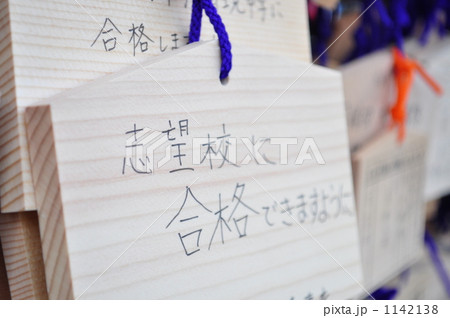 合格し
志望校に
合格できますように
PIXTA
pixta.jp - 1142138